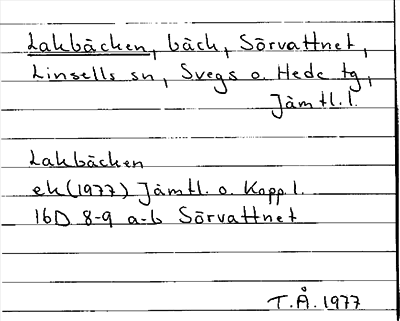 Lakbäcken, bäck, Sörvattnet,
Linsells sn, Svegs o. Hede tg,
Jämtl.l.
Lakbäcken
ek(1977) Jämtl. o. Kopp l.
16D 8-9 a-b Sörvattnet
T.Å. 1977